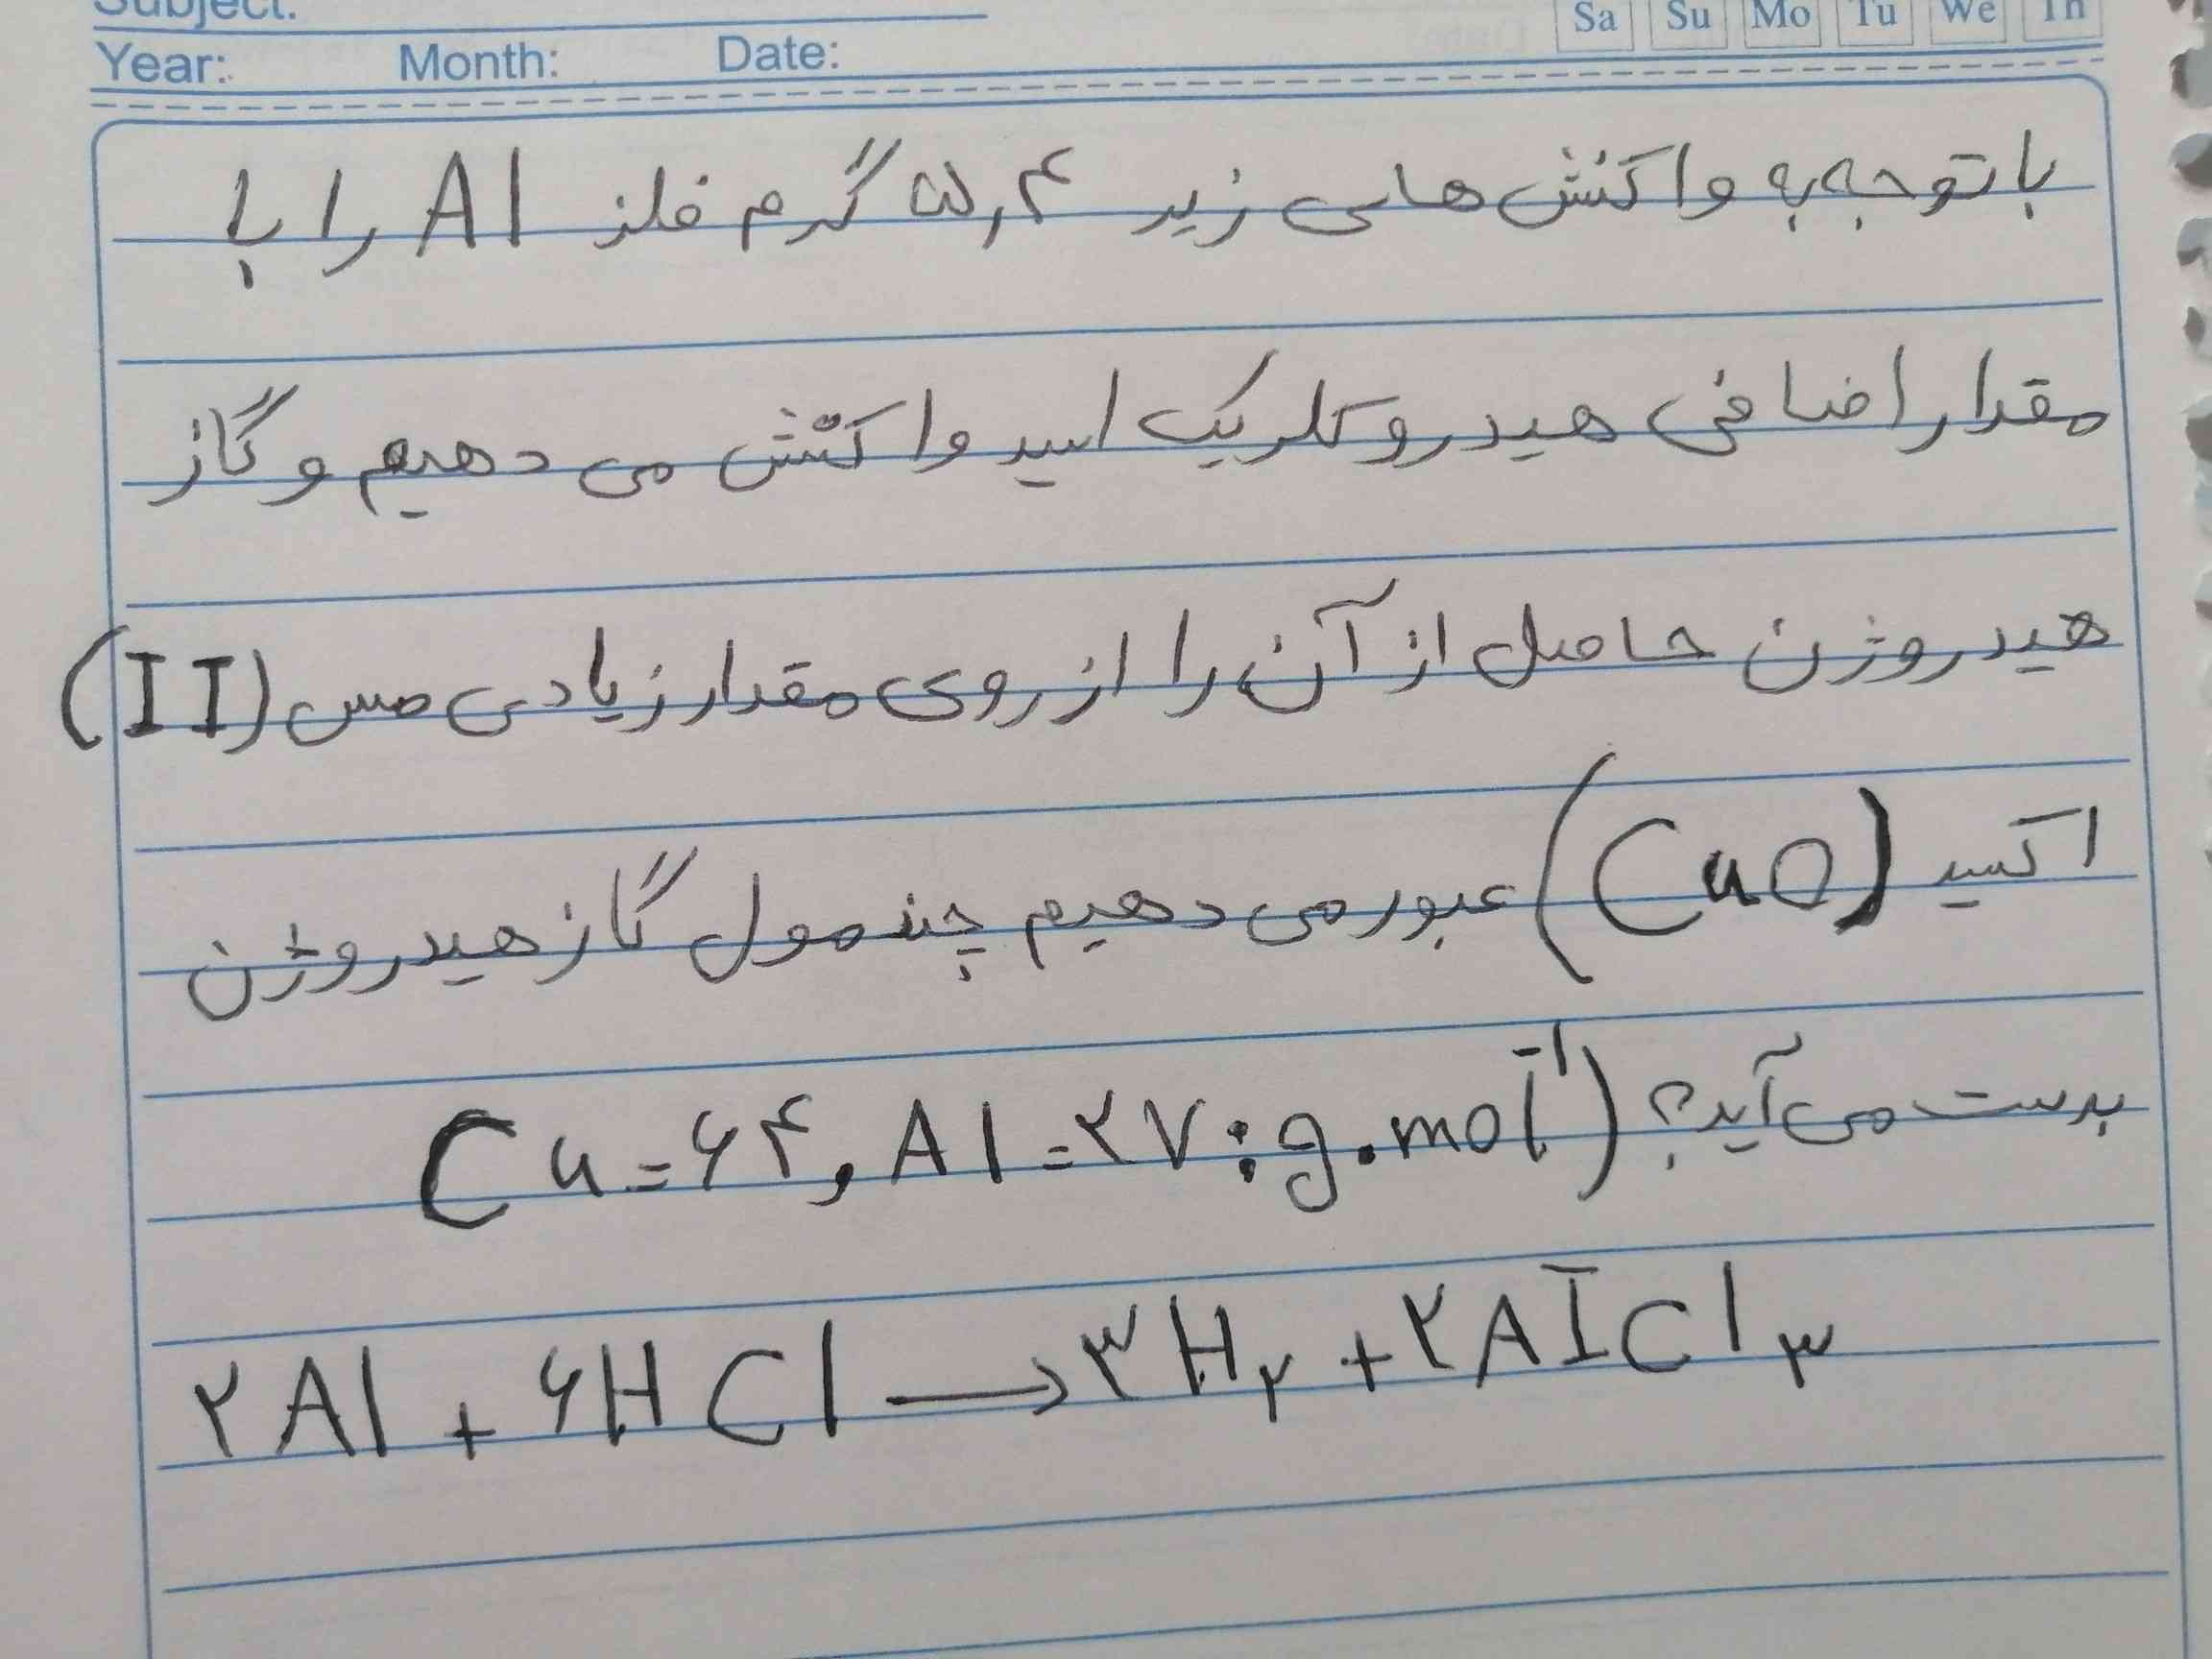 Subject:
Year: Month: Date:
Sa Su Mo Tu We Th
با توجه به واکنش های زیر ۵,۴ گرم فلز Al را با
مقدار اضافی هیدروکلریک اسید واکنش می دهیم و گاز
هیدروژن حاصل از آن را از روی مقدار زیادی مس (II)
اکسید (CuO) عبور می دهیم چند مول گاز هیدروژن
بدست می آید؟ (Cu=۶۴, Al=۲۷:g.mol⁻¹
۲Al + ۶HCl → ۳H₂ + ۲AlCl₃